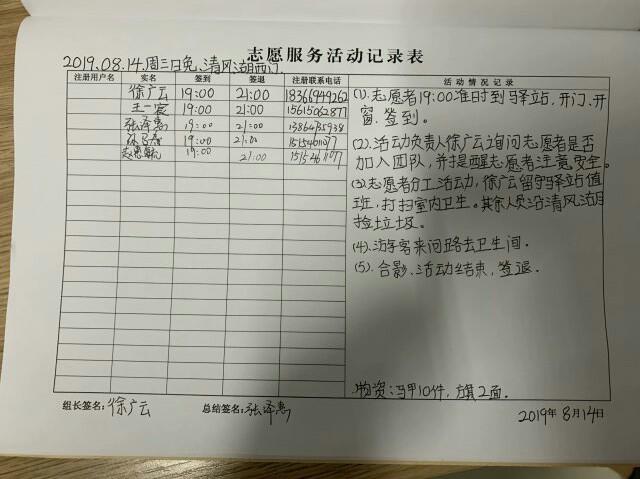 志愿服务活动记录表
2019.08.14.周三日免、清风湖西门.
注册用户名 实名 签到 签退 注册联系电话 活动情况记录
徐广云 19:00 21:00 18366949262
王一宸 19:00 21:00 15615062877
张泽惠 19:00 21:00
19:00 21:00
19:00 21:00
(1).志愿者19:00准时到驿站、开门、开
窗、签到.
(2).活动负责人徐广云询问志愿者是否
加入团队,并提醒志愿者注意安全.
(3)志愿者分工活动,徐广云留守驿站值
班,打扫室内卫生。其余人员沿清风湖
捡垃圾.
(4).访客来问路去卫生间.
(5).合影、活动结束,签退.
物资:马甲10件,方旗2面.
组长签名:徐广云 总结签名:张泽惠 2019年8月14日